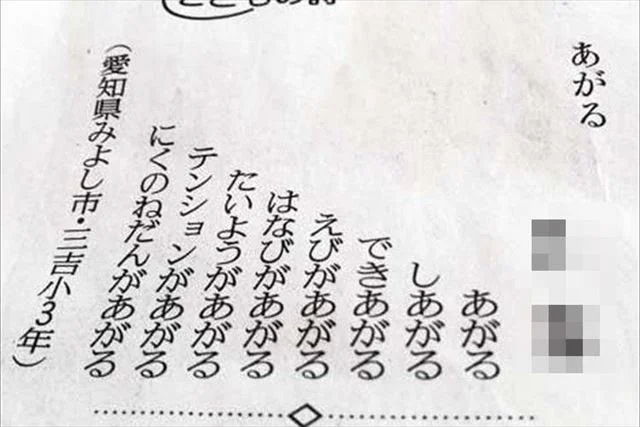 あがる
あがる
しあがる
できあがる
えびがあがる
はなびがあがる
たいようがあがる
テンションがあがる
にくのねだんがあがる
(愛知県みよし市・三吉小3年)